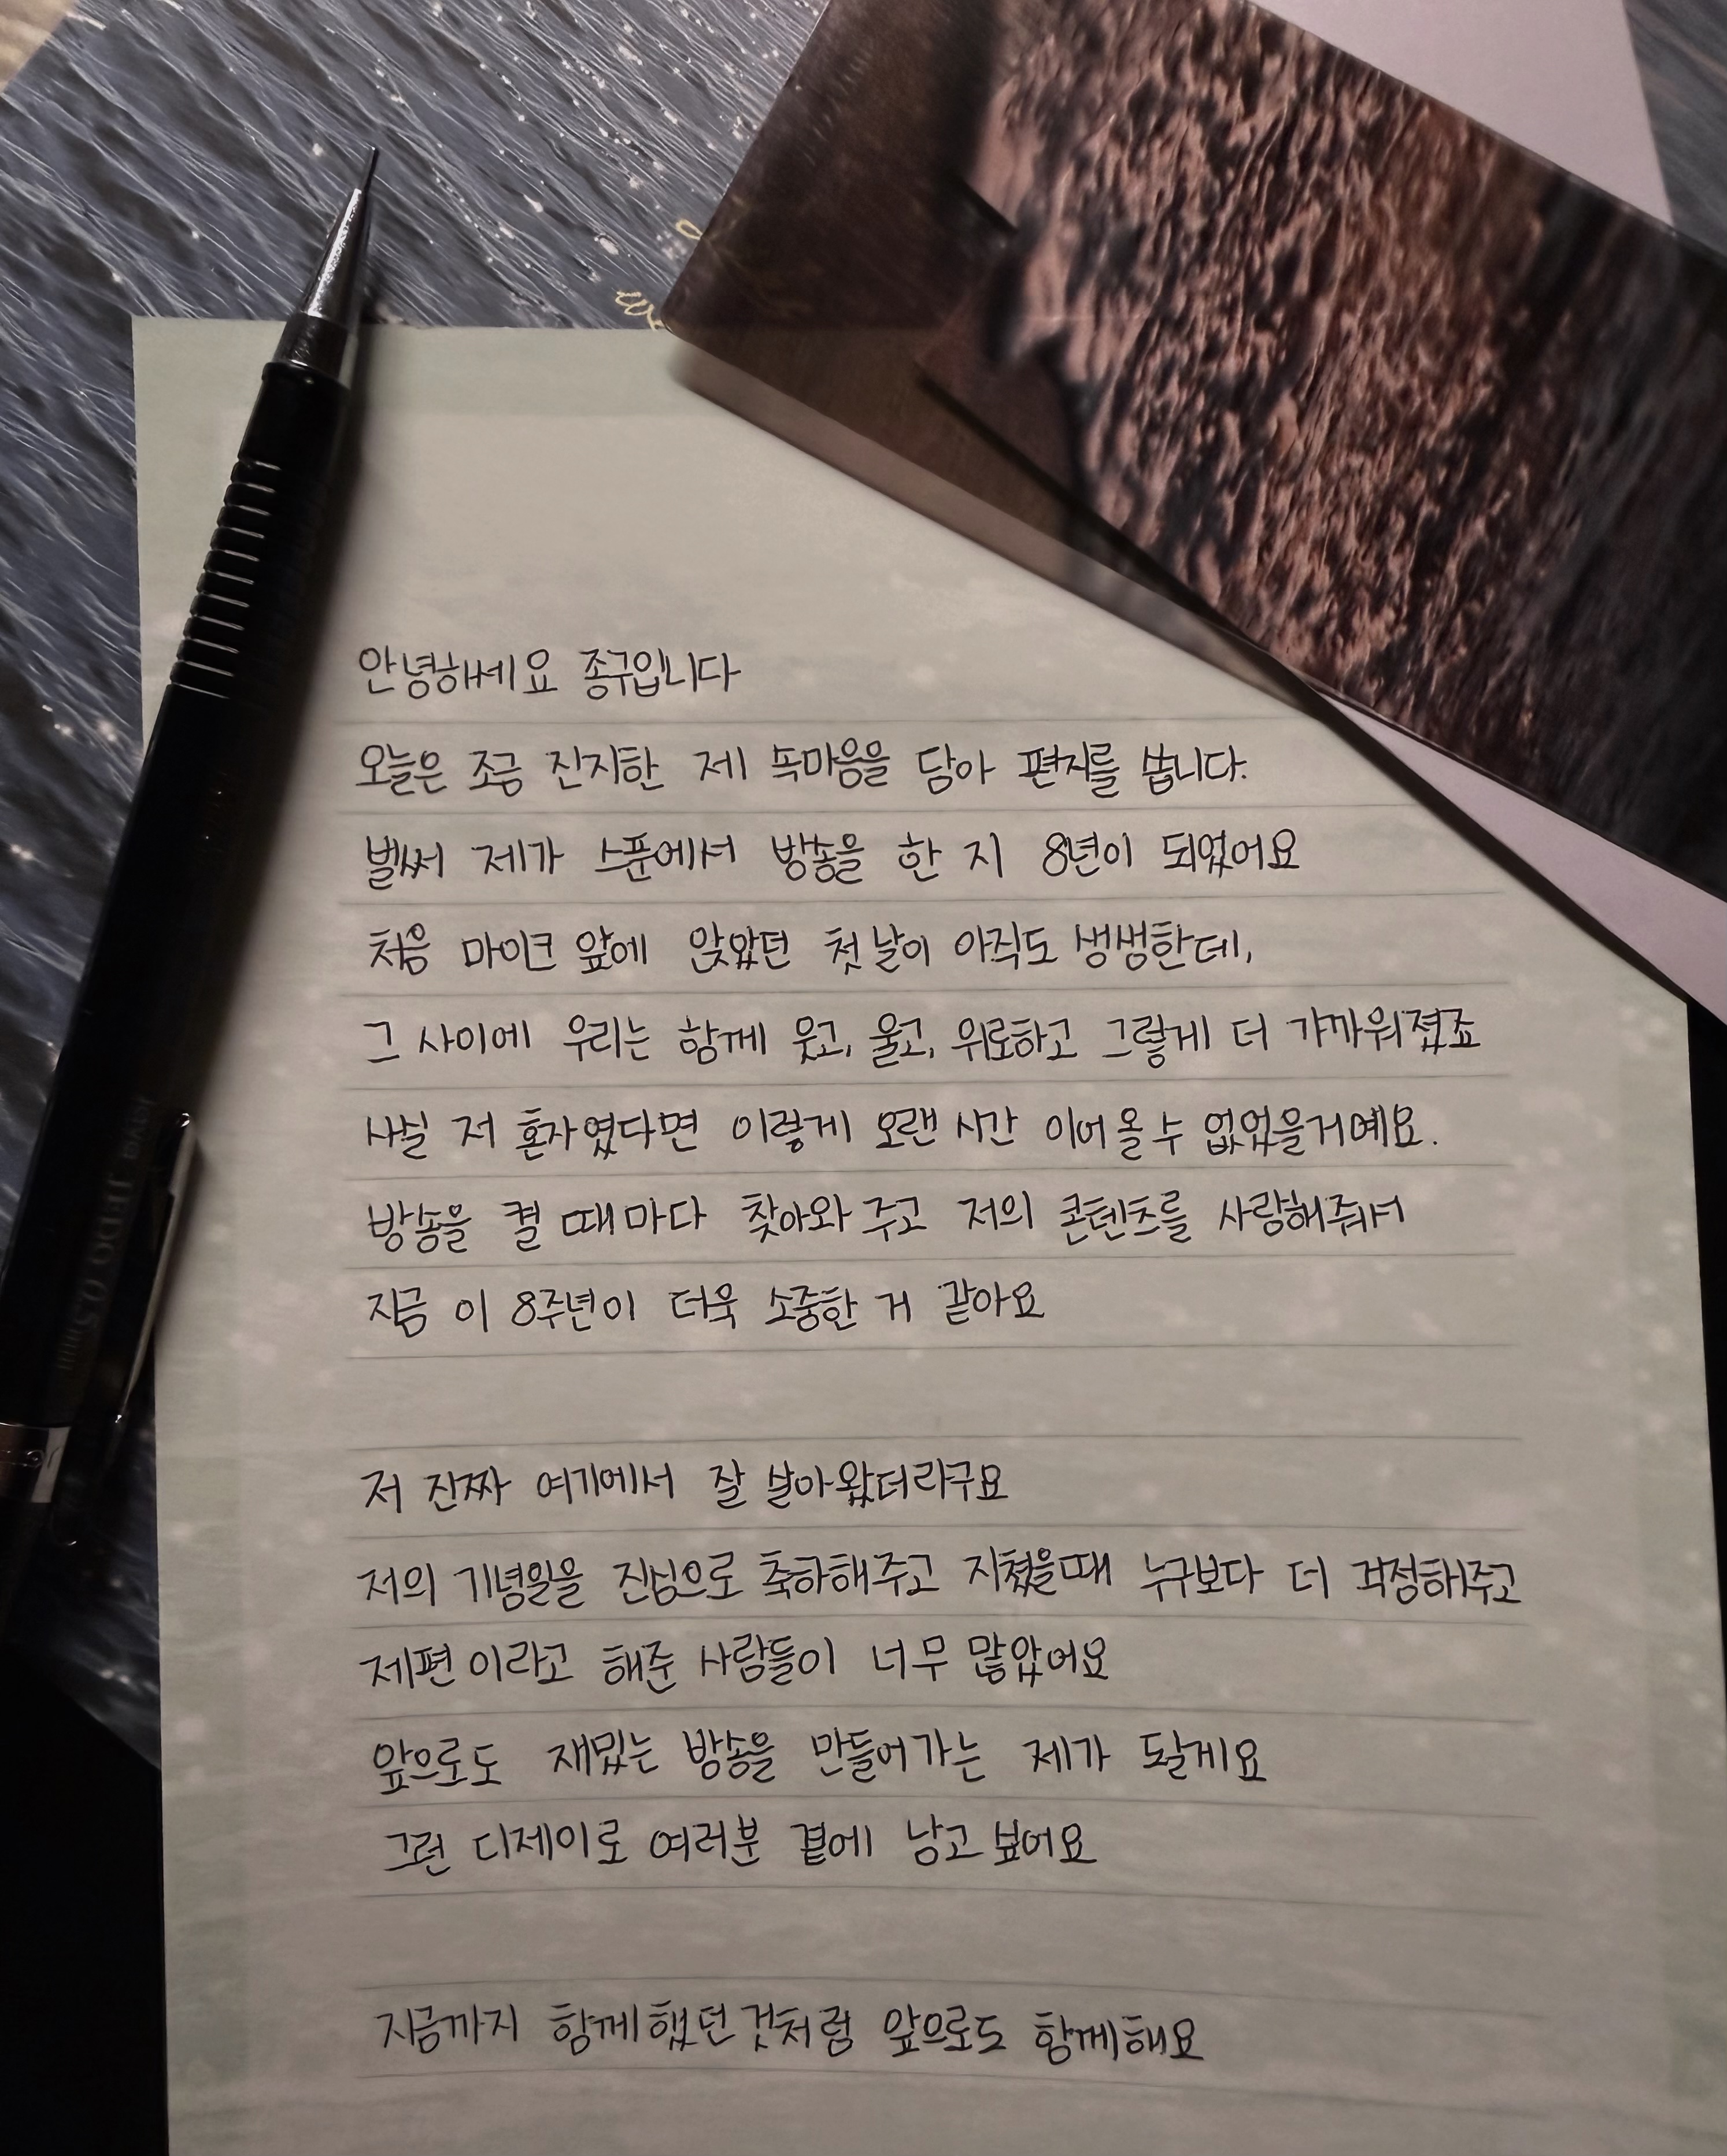 안녕하세요 종구입니다
오늘은 조금 진지한 제 속마음을 담아 편지를 씁니다.
벌써 제가 스푼에서 방송을 한 지 8년이 되었어요
처음 마이크 앞에 앉았던 첫날이 아직도 생생한데,
그 사이에 우리는 함께 웃고, 울고, 위로하고 그렇게 더 가까워졌죠
사실 저 혼자였다면 이렇게 오랜 시간 이어올 수 없었을거예요.
방송을 켤 때마다 찾아와 주고 저의 콘텐츠를 사랑해줘서
지금 이 8주년이 더욱 소중한 거 같아요
저 진짜 여기에서 잘 살아왔더라구요
저의 기념일을 진심으로 축하해주고 지쳤을때 누구보다 더 걱정해주고
제편이라고 해준 사람들이 너무 많았어요
앞으로도 재밌는 방송을 만들어가는 제가 될게요
그런 디제이로 여러분 곁에 남고싶어요
지금까지 함께했던것처럼 앞으로도 함께해요
JEDO 0.5mm